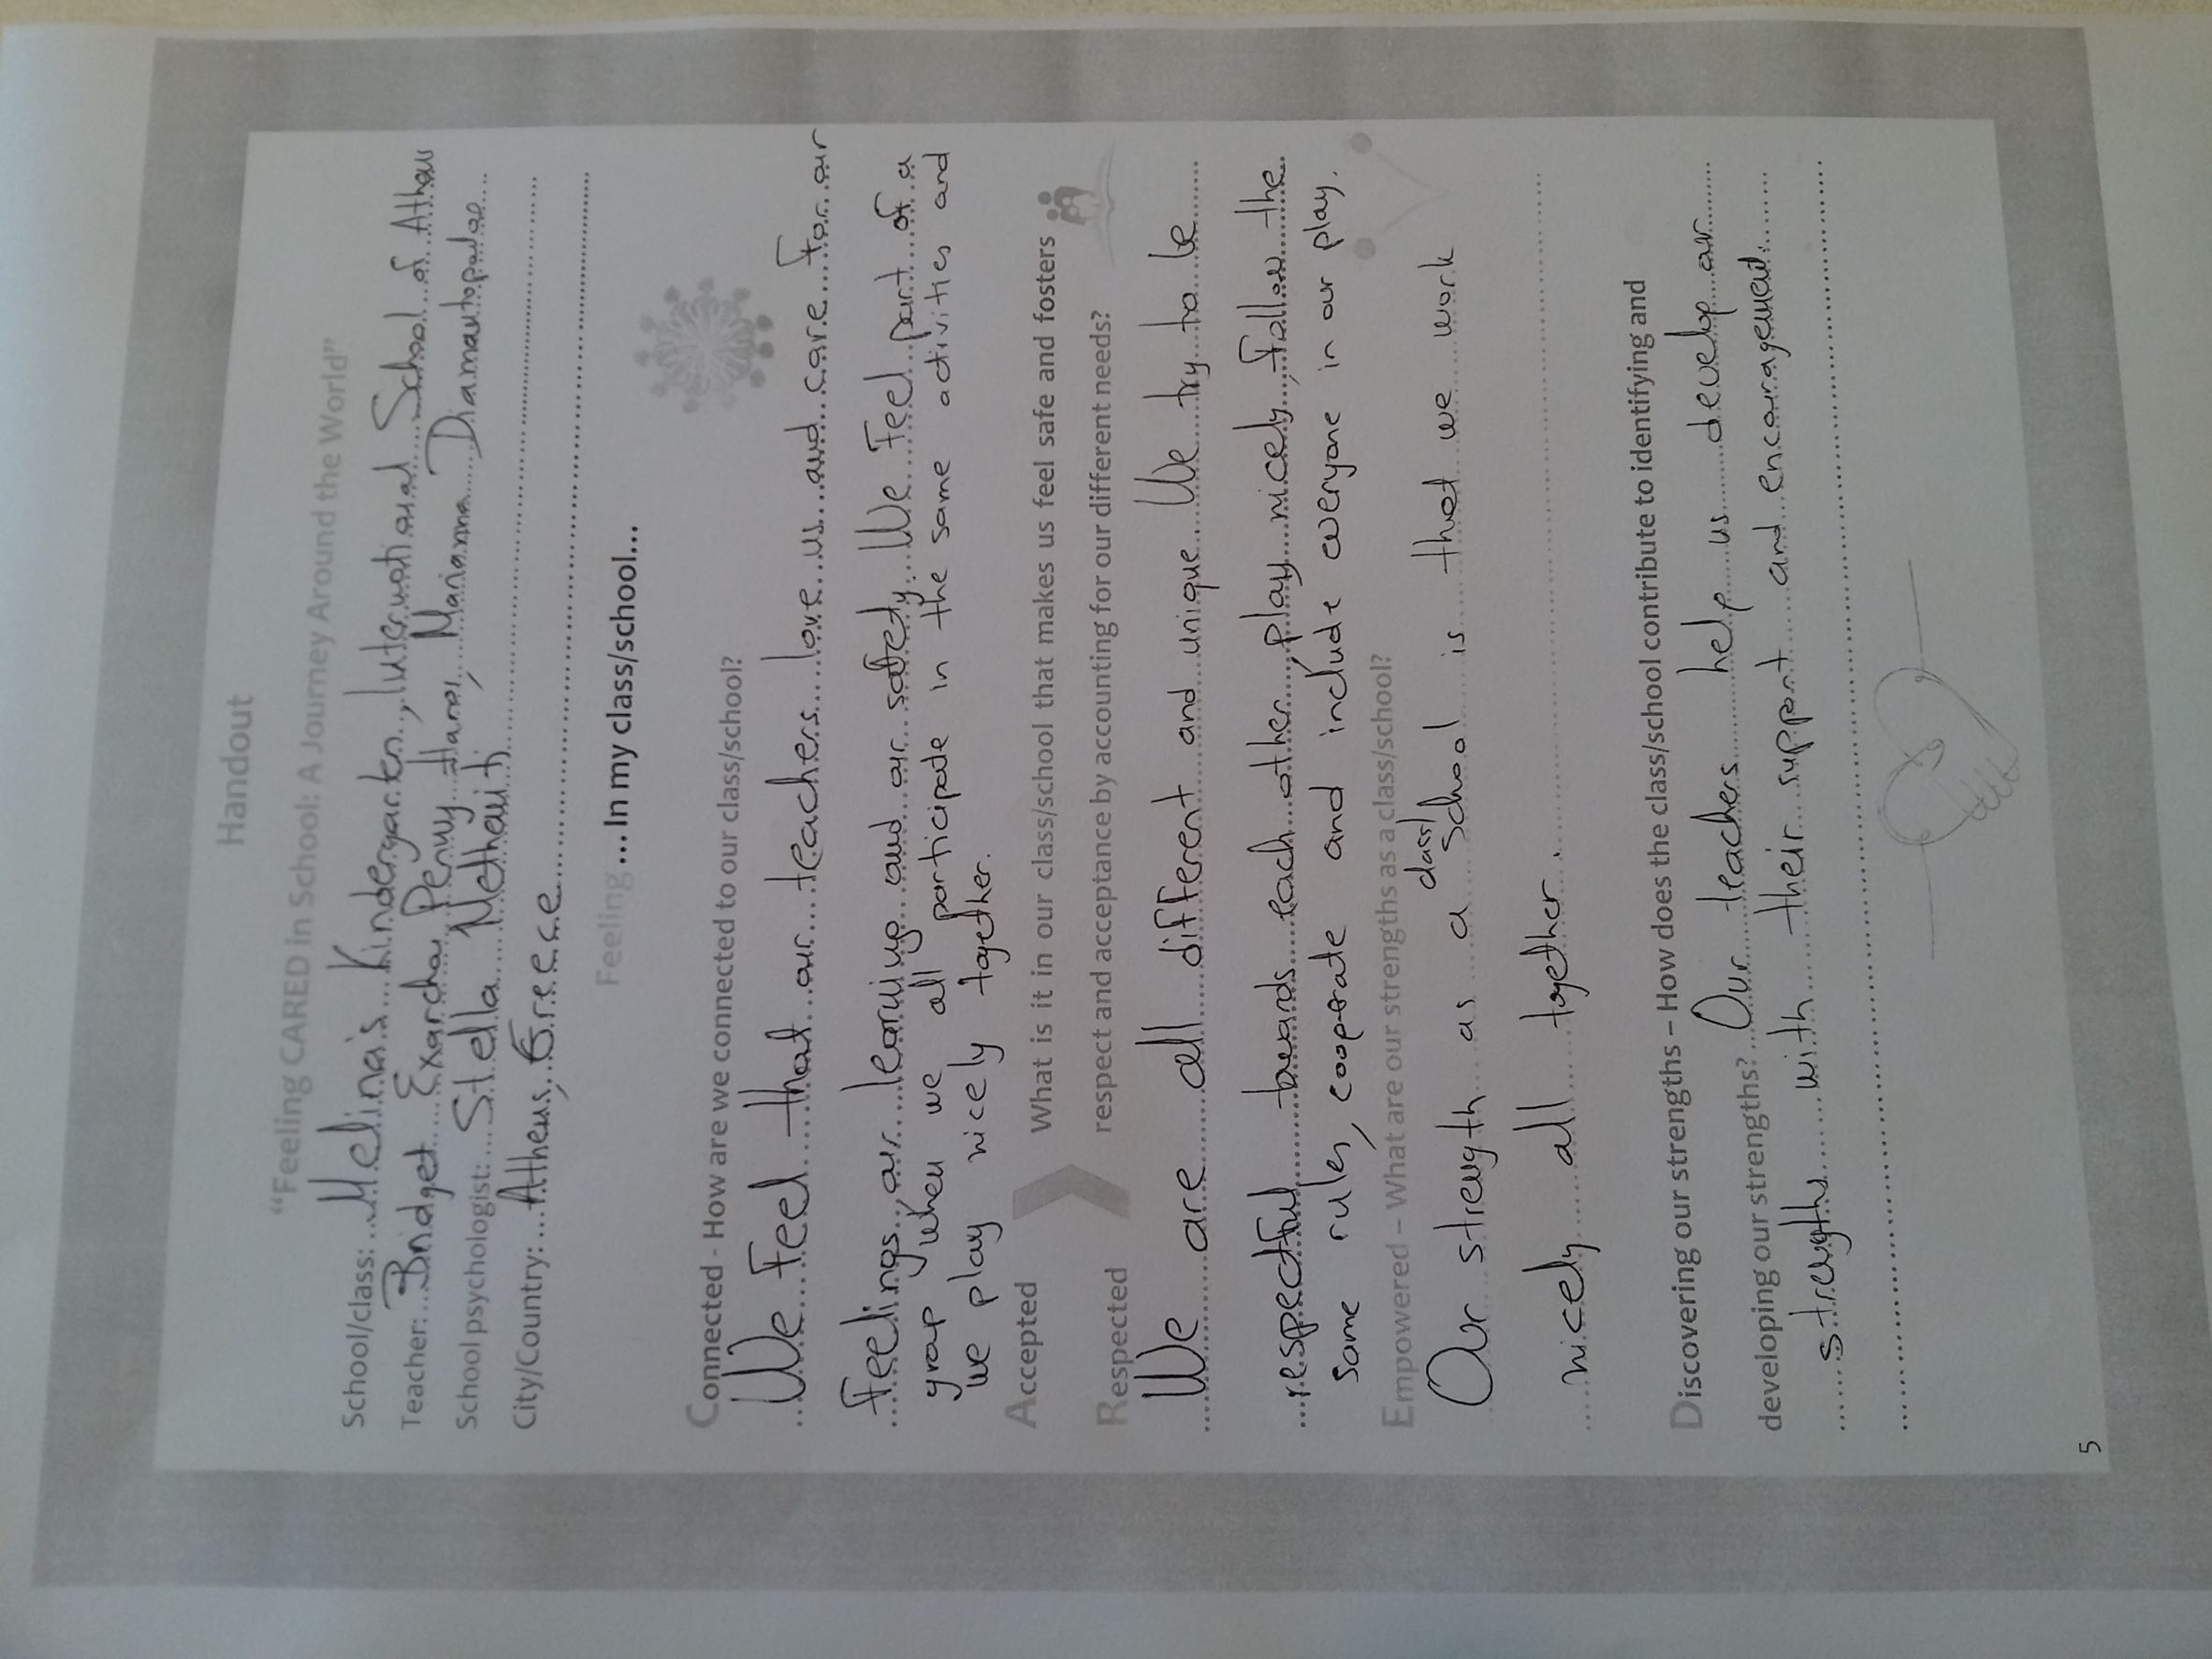 Handout
"Feeling CARED in School: A Journey Around the World"
School/class: Melina's Kindergarten, International School of Athens
Teacher: Bridget Exarchou, Penny Harai, Marianna Diamantopoulou
School psychologist: Stella Metheniti
City/Country: Athens, Greece
Feeling ...In my class/school...
Connected - How are we connected to our class/school?
We feel that our teachers love us and care for our
feelings, our learning and our safety. We feel part of a
group when we all participate in the same activities and
we play nicely together.
Accepted What is it in our class/school that makes us feel safe and fosters
Respected respect and acceptance by accounting for our different needs?
We are all different and unique. We try to be
respectful towards each other, play nicely, follow the
same rules, cooperate and include everyone in our play.
Empowered – What are our strengths as a class/school?
Our strength as a class/school is that we work
nicely all together.
Discovering our strengths – How does the class/school contribute to identifying and
developing our strengths? Our teachers help us develop our
strengths with their support and encouragement.
5